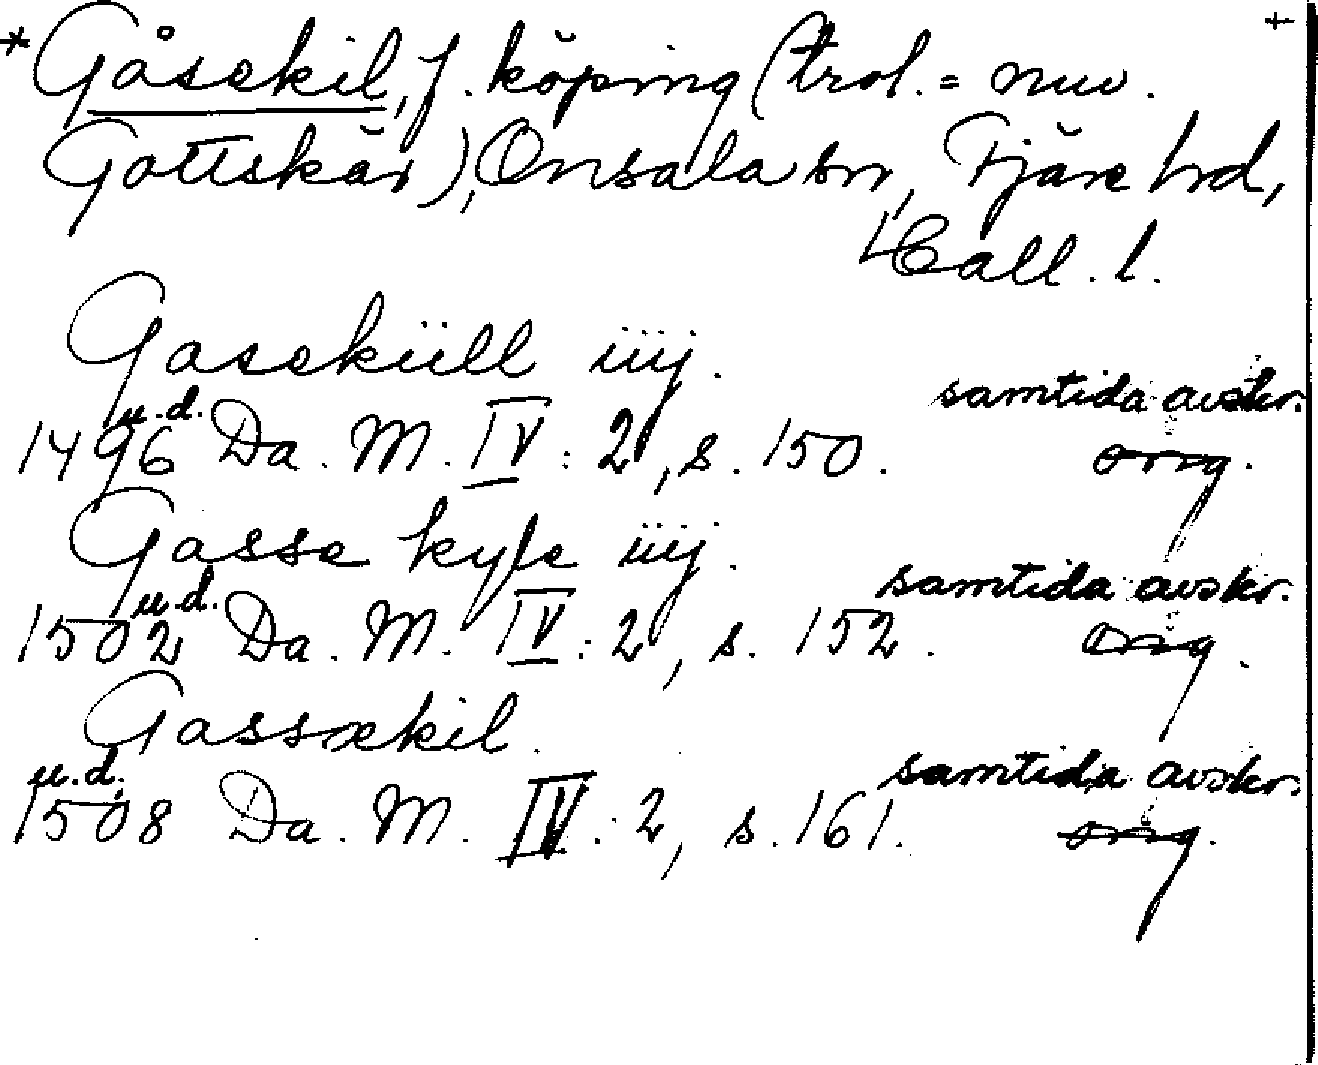 *Gåsekil, f. köping (trol. = nuv. +
Gottskär), Onsala sn, Fjäre hd,
Hall. l.
Gaseküll iiij.
1496 u.d. Da. M. IV : 2, s. 150. samtida avskr. orig.
Gasse kyle iiij.
1502 u.d. Da. M. IV : 2, s. 152. samtida avskr. orig.
Gassækil.
1508 u.d. Da. M. IV : 2, s. 161. samtida avskr. orig.